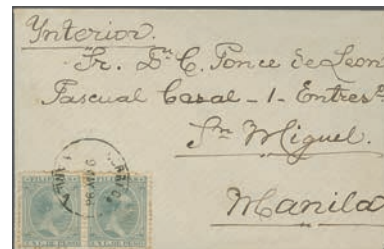 Ynterior.
Sr. Dn C. Ponce de Leon
Pascual Casal - 1 - Entreso
Sn Miguel.
Manila